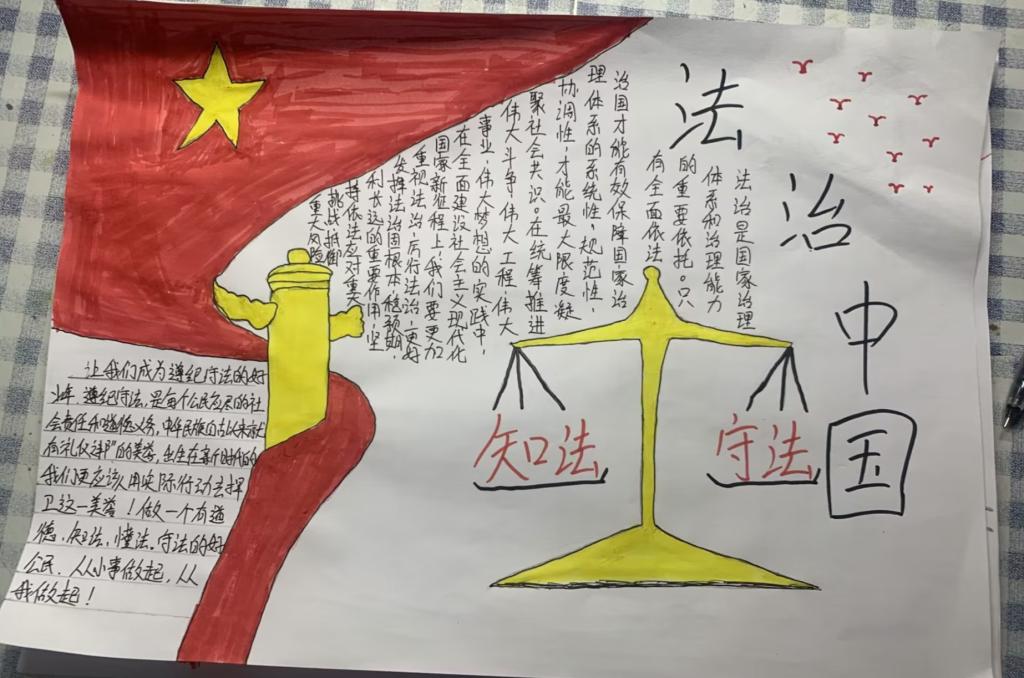 法
治
中
国
法治是国家治理
体系和治理能力
的重要依托。只
有全面依法
治国才能有效保障国家治
理体系的系统性,规范性,
协调性,才能最大限度凝
聚社会共识。在统筹推进
伟大斗争,伟大工程,伟大
事业,伟大梦想的实践中,
在全面建设社会主义现代化
国家新征程上,我们要更加
重视法治,厉行法治,更好
发挥法治固根本,稳预期,
利长远的重要作用,坚
持依法应对重大
挑战,抵御
重大风险
知法
守法
让我们成为遵纪守法的好
少年 遵纪守法,是每个公民应尽的社
会责任和道德义务,中华民族自古以来就
有礼仪之邦"的美誉,出生在新时代的
我们更应该用实际行动去捍
卫这一美誉!做一个有道
德、知法、懂法、守法的好
公民、从小事做起,从
我做起!